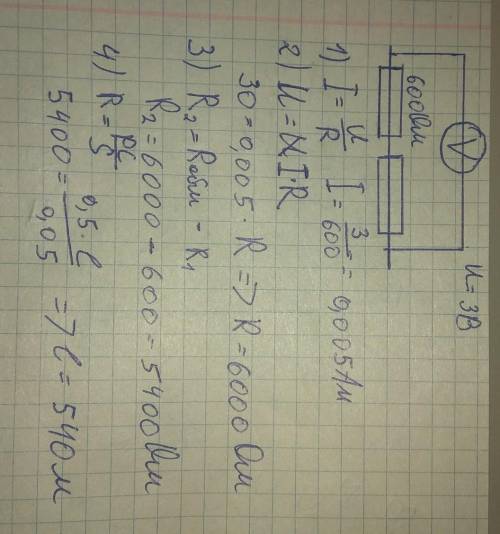 V
U = 3В
600 Ом
1) I = U/R   I = 3/600 = 0,005 Ам
2) U = I·R
30 = 0,005 · R => R = 6000 Ом
3) R₂ = Rобщ - R₁
R₂ = 6000 - 600 = 5400 Ом
4) R = ρl/S
5400 = 0,5·l/0,05 => l = 540 м